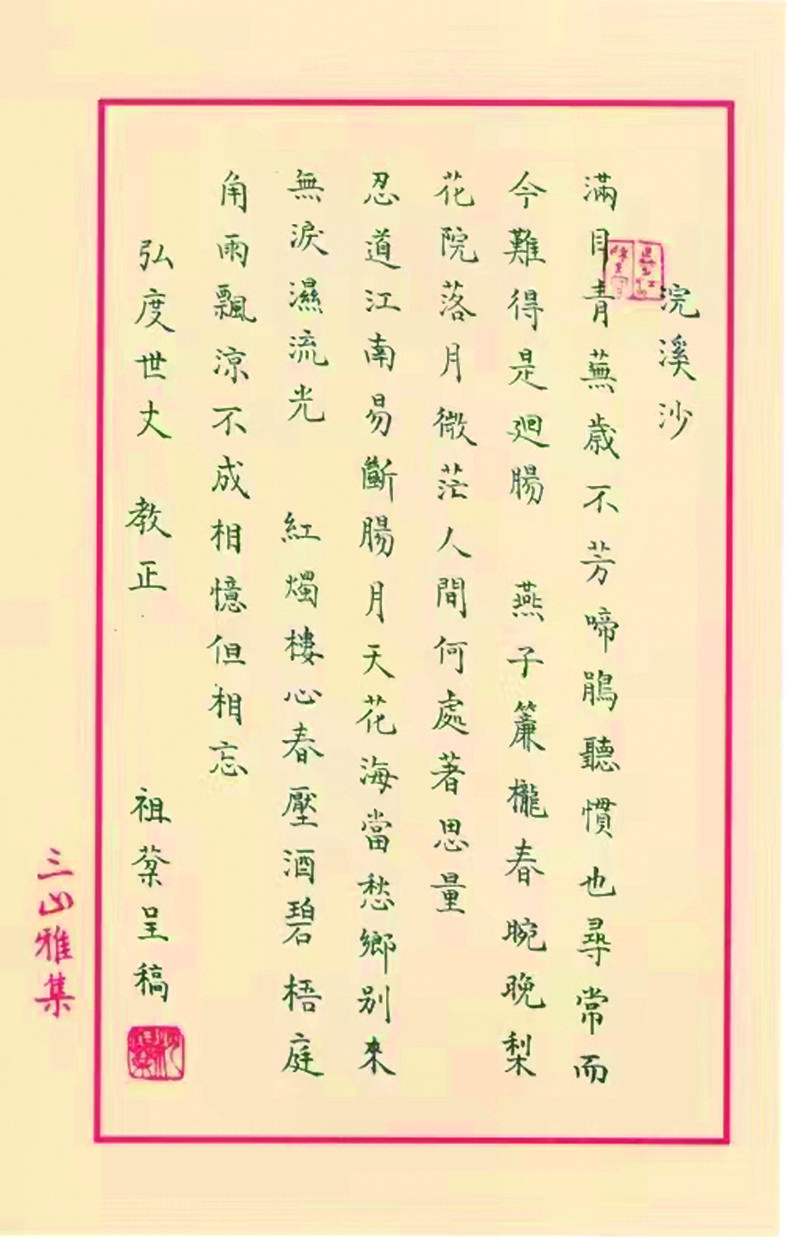 浣溪沙
滿目青蕪歲不芳啼鵑聽慣也尋常而
今難得是迴腸 燕子簾櫳春晼晚梨
花院落月微茫人間何處著思量
忍道江南易斷腸月天花海當愁鄉別來
無淚濕流光 紅燭樓心春壓酒碧梧庭
角雨飄涼不成相憶但相忘
弘度世丈 教正 祖棻呈稿
三山雅集